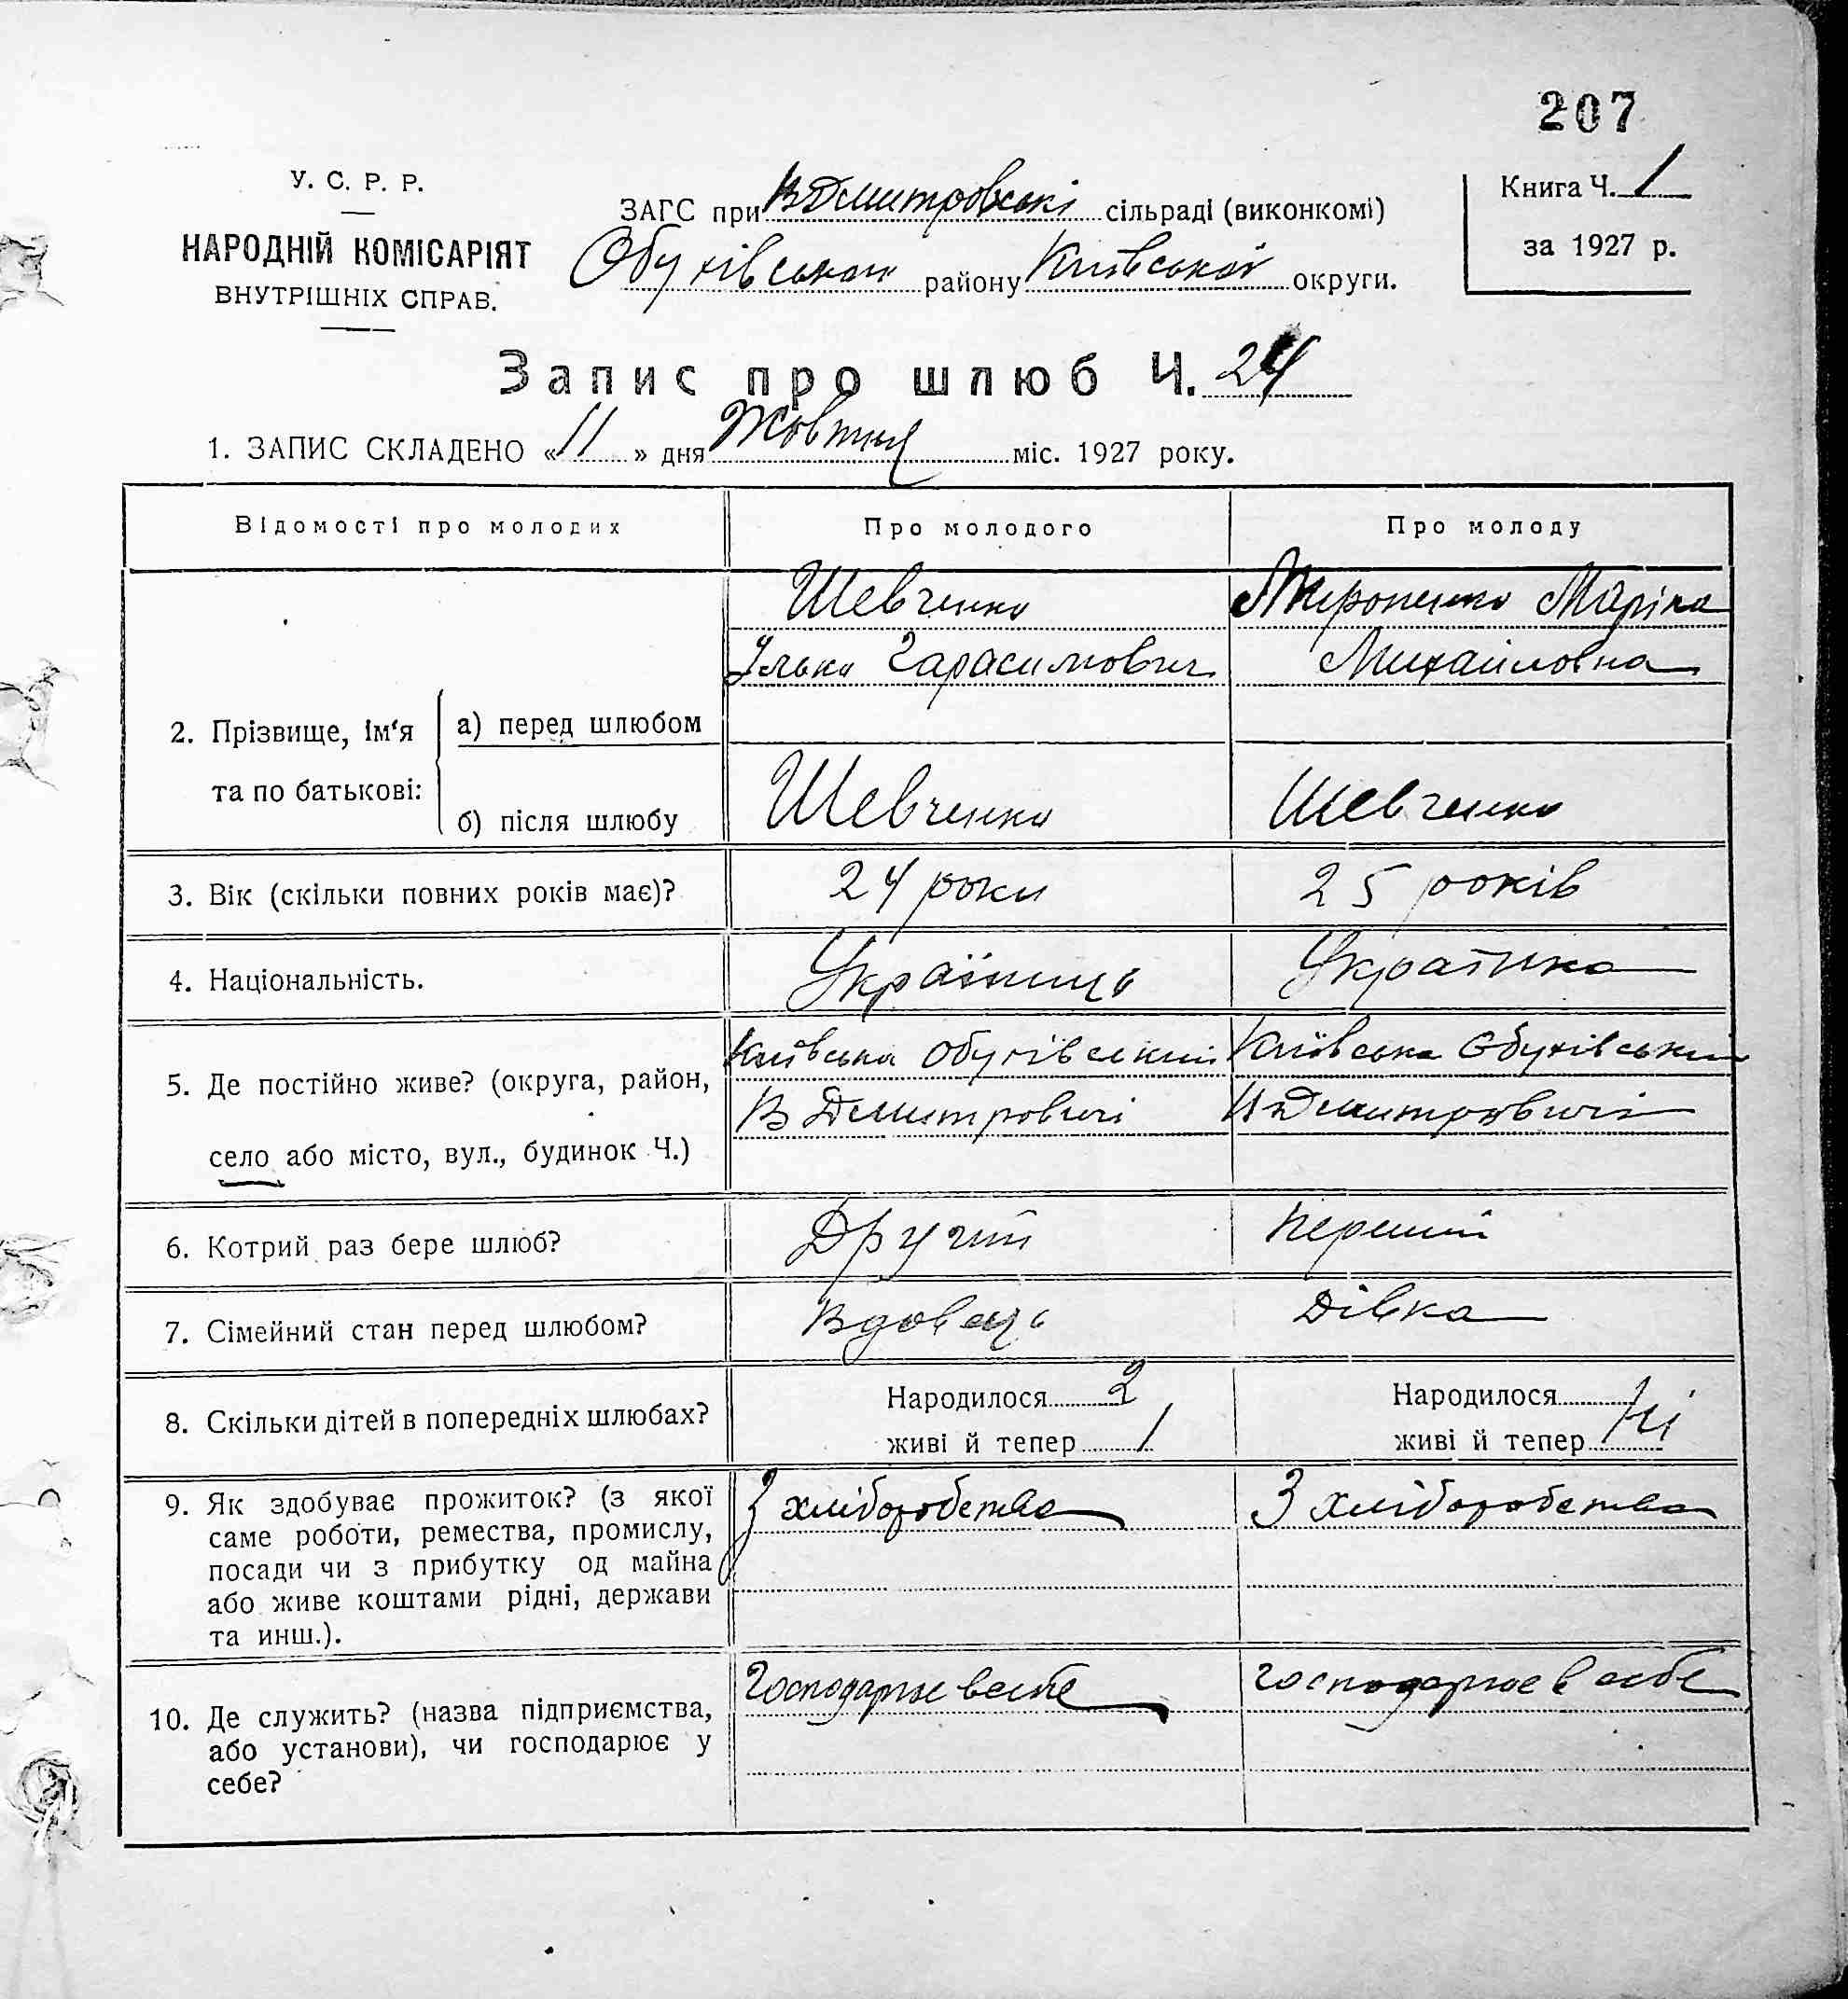 207
У. С. Р. Р.
НАРОДНІЙ КОМІСАРІЯТ
ВНУТРІШНІХ СПРАВ.
ЗАГС при ВДмитровські сільраді (виконкомі)
Обухівськом району Київської округи.
Книга Ч. 1
за 1927 р.
Запис про шлюб Ч. 24
1. ЗАПИС СКЛАДЕНО «11» дня Жовтня міс. 1927 року.
Відомості про молодих Про молодого Про молоду
2. Прізвище, ім'я та по батькові:
а) перед шлюбом
Шевченко
Ілько Гарасимович
Мироненко Маріка
Михайловна
б) після шлюбу Шевченко Шевченко
3. Вік (скільки повних років має)? 24 роки 25 років
4. Національність. Українець Українка
5. Де постійно живе? (округа, район,
село або місто, вул., будинок Ч.)
Київська Обухівський
В Дмитровичі
Київська Обухівський
В Дмитровичі
6. Котрий раз бере шлюб? Другий Перший
7. Сімейний стан перед шлюбом? Вдовець Дівка
8. Скільки дітей в попередніх шлюбах?
Народилося 2
живі й тепер 1
Народилося
живі й тепер Ні
9. Як здобуває прожиток? (з якої
саме роботи, ремества, промислу,
посади чи з прибутку од майна
або живе коштами рідні, держави
та инш.).
З хліборобства
З хліборобства
10. Де служить? (назва підприємства,
або установи), чи господарює у
себе?
Господарює в себе
господарює в себе